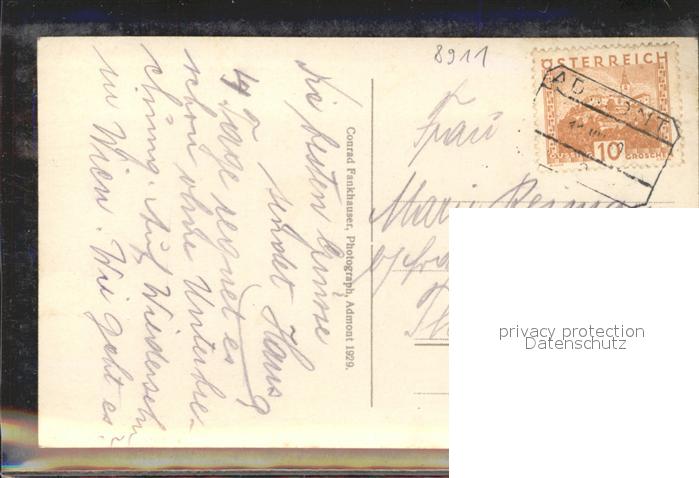 8911
ÖSTERREICH
ADMONT
10 GROSCHEN
Frau
Marie
Conrad Fankhauser, Photograph, Admont 1929.
Die besten Grüße
sendet Hans
4 Tage regnet es
schon ohne Unterbre-
chung. Auf Wiedersehn
in Wien. Wie geht es?
privacy protection
Datenschutz